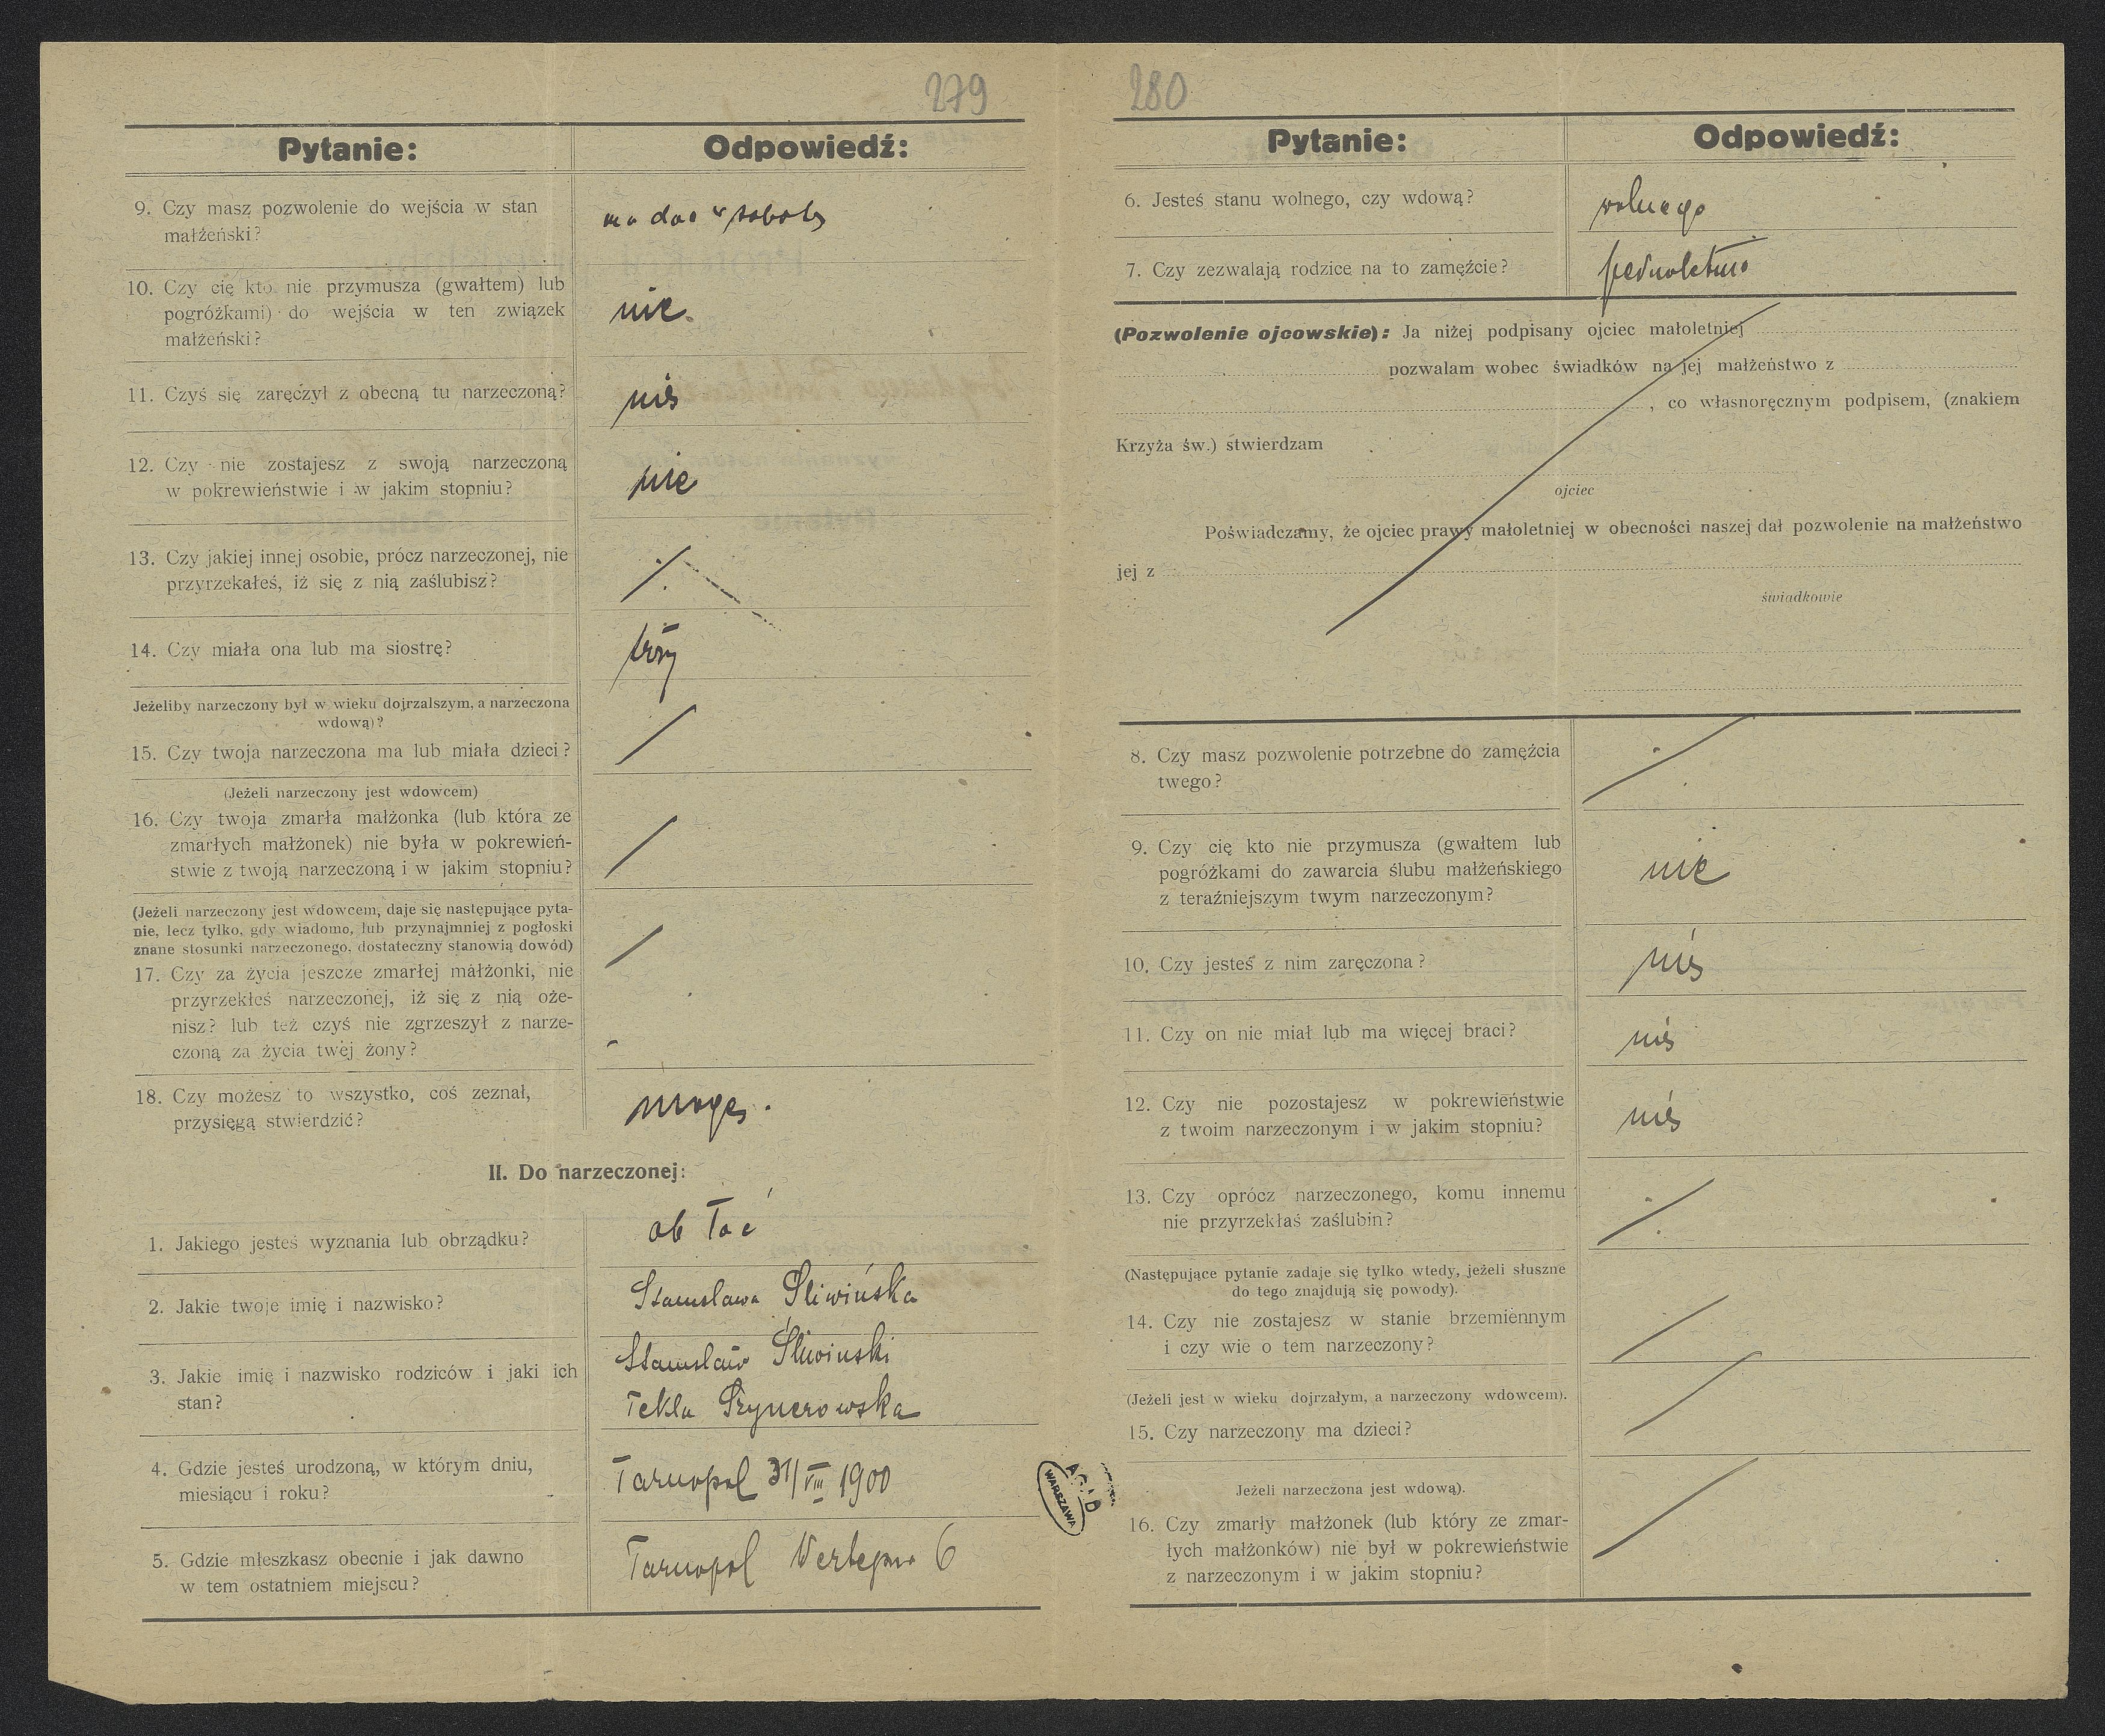 279
Pytanie:
Odpowiedź:
9. Czy masz pozwolenie do wejścia w stan
małżeński?
ma dać w sobotę
10. Czy cię kto nie przymusza (gwałtem) lub
pogróżkami) do wejścia w ten związek
małżeński?
nie.
11. Czyś się zaręczył z obecną tu narzeczoną?
12. Czy nie zostajesz z swoją narzeczoną
w pokrewieństwie i w jakim stopniu?
nie
13. Czy jakiej innej osobie, prócz narzeczonej, nie
przyrzekałeś, iż się z nią zaślubisz?
14. Czy miała ona lub ma siostrę?
Jeżeliby narzeczony był w wieku dojrzalszym, a narzeczona
wdową)?
15. Czy twoja narzeczona ma lub miała dzieci?
(Jeżeli narzeczony jest wdowcem)
16. Czy twoja zmarła małżonka (lub która ze
zmarłych małżonek) nie była w pokrewień-
stwie z twoją narzeczoną i w jakim stopniu?
(Jeżeli narzeczony jest wdowcem, daje się następujące pyta-
nie, lecz tylko, gdy wiadomo, lub przynajmniej z pogłoski
znane stosunki narzeczonego, dostateczny stanowią dowód)
17. Czy za życia jeszcze zmarłej małżonki, nie
przyrzekłeś narzeczonej, iż się z nią oże-
nisz? lub też czyś nie zgrzeszył z narze-
czoną za życia twej żony?
18. Czy możesz to wszystko, coś zeznał,
przysięgą stwierdzić?
mogę.
II. Do narzeczonej:
1. Jakiego jesteś wyznania lub obrządku?
ob łać
2. Jakie twoje imię i nazwisko?
Stanisława Śliwińska
3. Jakie imię i nazwisko rodziców i jaki ich
stan?
Stanisław Śliwiński
Tekla
4. Gdzie jesteś urodzoną, w którym dniu,
miesiącu i roku?
Tarnopol 31/VIII 1900
5. Gdzie mieszkasz obecnie i jak dawno
w tem ostatniem miejscu?
Tarnopol 6
280
Pytanie:
Odpowiedź:
6. Jesteś stanu wolnego, czy wdową?
wolnego
7. Czy zezwalają rodzice na to zamęźcie?
(Pozwolenie ojcowskie): Ja niżej podpisany ojciec małoletniej
pozwalam wobec świadków na jej małżeństwo z
, co własnoręcznym podpisem, (znakiem
Krzyża św.) stwierdzam
ojciec
Poświadczamy, że ojciec prawy małoletniej w obecności naszej dał pozwolenie na małżeństwo
jej z
świadkowie
8. Czy masz pozwolenie potrzebne do zamęźcia
twego?
9. Czy cię kto nie przymusza (gwałtem lub
pogróżkami do zawarcia ślubu małżeńskiego
z teraźniejszym twym narzeczonym?
nie
10. Czy jesteś z nim zaręczona?
11. Czy on nie miał lub ma więcej braci?
12. Czy nie pozostajesz w pokrewieństwie
z twoim narzeczonym i w jakim stopniu?
13. Czy oprócz narzeczonego, komu innemu
nie przyrzekłaś zaślubin?
(Następujące pytanie zadaje się tylko wtedy, jeżeli słuszne
do tego znajdują się powody).
14. Czy nie zostajesz w stanie brzemiennym
i czy wie o tem narzeczony?
(Jeżeli jest w wieku dojrzałym, a narzeczony wdowcem).
15. Czy narzeczony ma dzieci?
Jeżeli narzeczona jest wdową).
16. Czy zmarły małżonek (lub który ze zmar-
łych małżonków) nie był w pokrewieństwie
z narzeczonym i w jakim stopniu?
AGAD
WARSZAWA